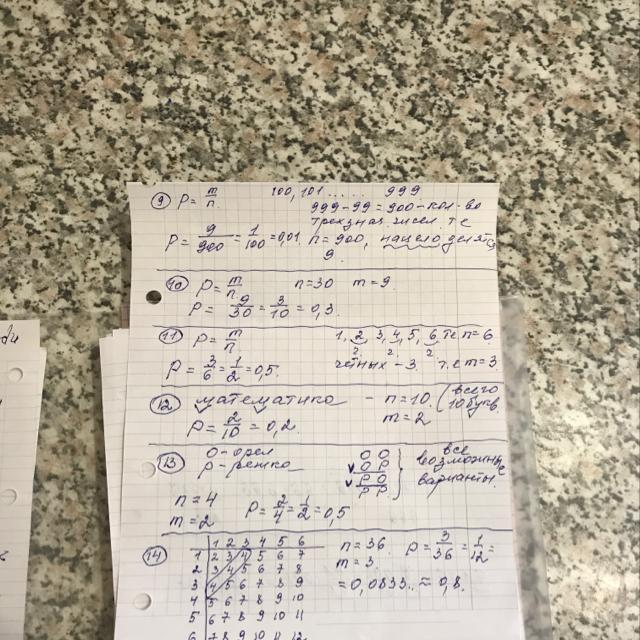 9 P = m/n 100, 101 ...... 999
999 - 99 = 900 - кол-во
трехзнач. чисел. т.е
P = 9/900 = 1/100 = 0,01 n = 900, нацело делятся
9.
10 P = m/n n = 30 m = 9.
P = 9/30 = 3/10 = 0,3.
11 P = m/n. 1, 2, 3, 4, 5, 6, т.е n = 6
2 2 2
P = 3/6 = 1/2 = 0,5. чётных - 3. т.е m = 3.
12 математика - n = 10. (всего
10 букв.
P = 2/10 = 0,2. m = 2
13 О - орел
Р - решка
О О
О Р
Р О
Р Р
все
возможные
варианты.
n = 4
m = 2 P = 2/4 = 1/2 = 0,5
14 1 2 3 4 5 6
1 2 3 4 5 6 7
2 3 4 5 6 7 8
3 4 5 6 7 8 9
4 5 6 7 8 9 10
5 6 7 8 9 10 11
6 7 8 9 10 11 12
n = 36. P = 3/36 = 1/12 =
m = 3.
= 0,0833.. ≈ 0,8.